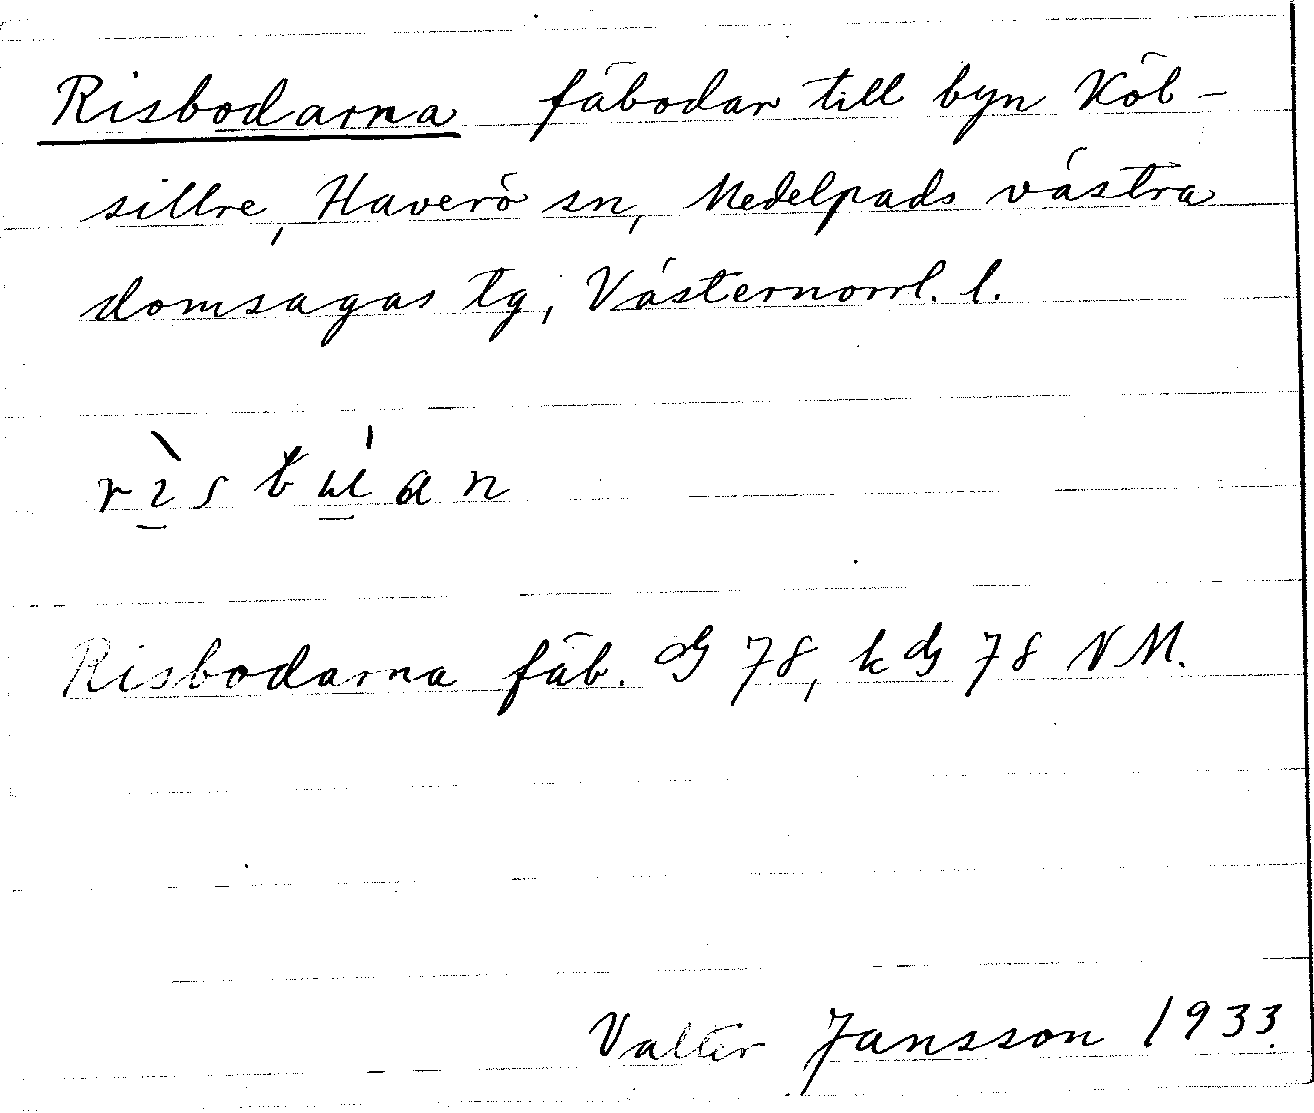 Risbodarna fäbodar till byn Köb-
sillre, Haverö sn, Medelpads västra
domsagas tg, Västernorrl. l.
Risbodarna fäb. 78, k 78 NM.
Valter Jansson 1933.